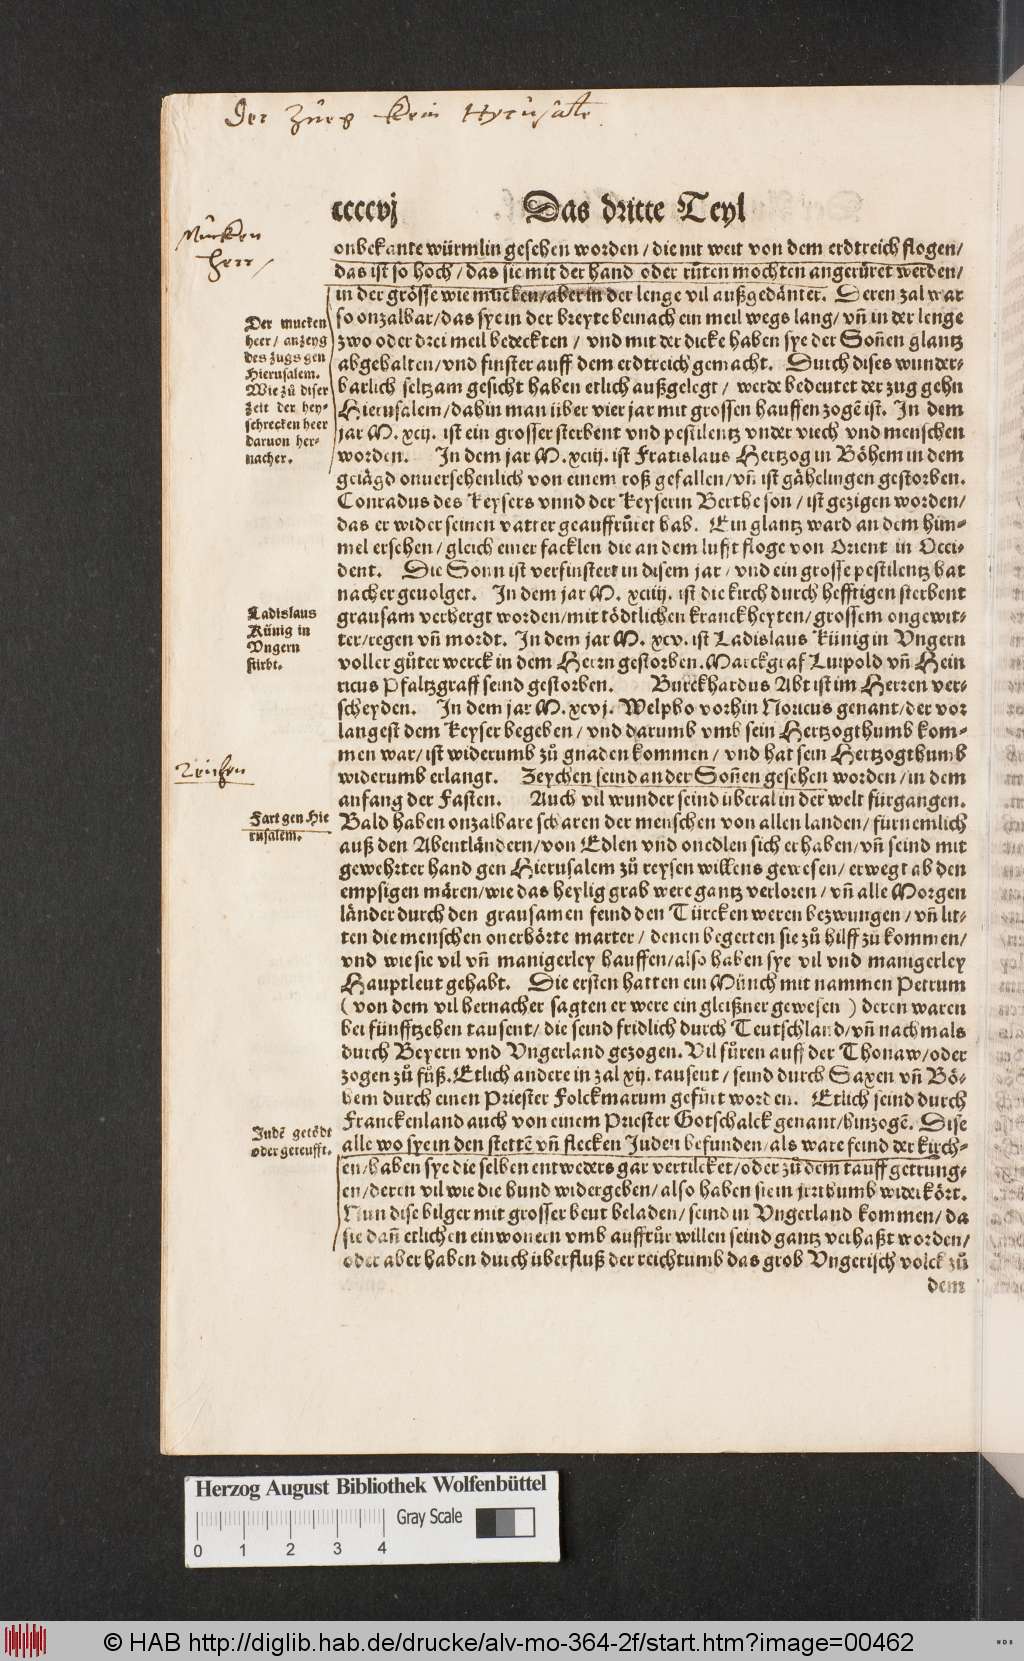 Der Zug kein Hyerusale
ccccvj Das dritte Teyl
Mucken
heer /
onbekante würmlin gesehen worden / die nit weit von dem erdtreich flogen /
das ist so hoch / das sie mit der hand oder růten mochten angerůret werden /
in der grösse wie mucken / aber in der lenge vil außgedänter. Deren zal war
so onzalbar / das sye in der breyte beinach ein meil wegs lang / vñ in der lenge
zwo oder drei meil bedeckten / vnd mit der dicke haben sye der Soñen glantz
abgehalten / vnd finster auff dem erdtreich gemacht. Durch dises wunder-
barlich seltzam gesicht haben etlich außgelegt / werde bedeutet der zug gehn
Hierusalem / dahin man über vier jar mit grossen hauffen zogē ist. In dem
jar M. xcij. ist ein grosser sterbent vnd pestilentz vnder viech vnd menschen
worden. In dem jar M. xciij. ist Fratislaus Hertzog in Böhem in dem
geiägd onuersehenlich von einem roß gefallen / vñ ist gähelingen gestorben.
Conradus des Keysers vnnd der Keyserin Berthe son / ist gezigen worden /
das er wider seinen vatter geauffrůret hab. Ein glantz ward an dem him-
mel ersehen / gleich einer facklen die an dem lufft floge von Orient in Occi-
dent. Die Sonn ist verfinstert in disem jar / vnd ein grosse pestilentz hat
nacher geuolget. In dem jar M. xciiij. ist die kirch durch hefftigen sterbent
grausam verhergt worden / mit tödtlichen kranckheyten / grossem ongewit-
ter / regen vñ mordt. In dem jar M. xcv. ist Ladislaus Künig in Vngern
voller gůter werck in dem Herrn gestorben. Marckgraf Luipold vñ Hein
ricus Pfaltzgraff seind gestorben. Burckhardus Abt ist im Herren ver-
scheyden. In dem jar M. xcvj. Welpho vorhin Noricus genant / der vor
langest dem Keyser begeben / vnd darumb vmb sein Hertzogthumb kom-
men war / ist widerumb zů gnaden kommen / vnd hat sein Hertzogthumb
widerumb erlangt. Zeychen seind an der Soñen gesehen worden / in dem
anfang der Fasten. Auch vil wunder seind überal in der welt fürgangen.
Bald haben onzalbare scharen der menschen von allen landen / fürnemlich
auß den Abentländern / von Edlen vnd onedlen sich erhaben / vñ seind mit
gewehrter hand gen Hierusalem zů reysen willens gewesen / erwegt ab den
empsigen mären / wie das heylig grab were gantz verloren / vñ alle Morgen
länder durch den grausamen feind den Türcken weren bezwungen / vñ lit-
ten die menschen onerhörte marter / denen begerten sie zů hilff zů kommen /
vnd wie sie vil vñ manigerley hauffen / also haben sye vil vnd manigerley
Hauptleut gehabt. Die ersten hatten ein Münch mit nammen Petrum
( von dem vil hernacher sagten er were ein gleißner gewesen ) deren waren
bei fünfftzehen tausent / die seind fridlich durch Teutschland / vñ nachmals
durch Beyern vnd Vngerland gezogen. Vil fůren auff der Thonaw / oder
zogen zů fůß. Etlich andere in zal xij. tausent / seind durch Saxen vñ Bö-
hem durch einen Priester Folckmarum gefürt worden. Etlich seind durch
Franckenland auch von einem Priester Gotschalck genant / hinzogē. Dise
alle wo sye in den stettē vñ flecken Juden befunden / als ware feind der kirch-
en / haben sye die selben entweders gar vertilcket / oder zů dem tauff getrung-
en / deren vil wie die hund widergeben / also haben sie in jrrthumb widerkört.
Nun dise bilger mit grosser beut beladen / seind in Vngerland kommen / da
sie dañ etlichen einwonern vmb auffrůr willen seind gantz verhaßt worden /
oder aber haben durch überfluß der reichtumb das grob Vngerisch volck zů
dem
Der mucken
heer / anzeyg
des zugs gen
Hierusalem.
Wie zů diser
zeit der hey-
schrecken heer
daruon her-
nacher.
Ladislaus
Künig in
Vngern
stirbt.
Zeichen
Fart gen Hie
rusalem.
Judē getödt
oder geteufft.
Herzog August Bibliothek Wolfenbüttel
Gray Scale
0 1 2 3 4
© HAB http://diglib.hab.de/drucke/alv-mo-364-2f/start.htm?image=00462